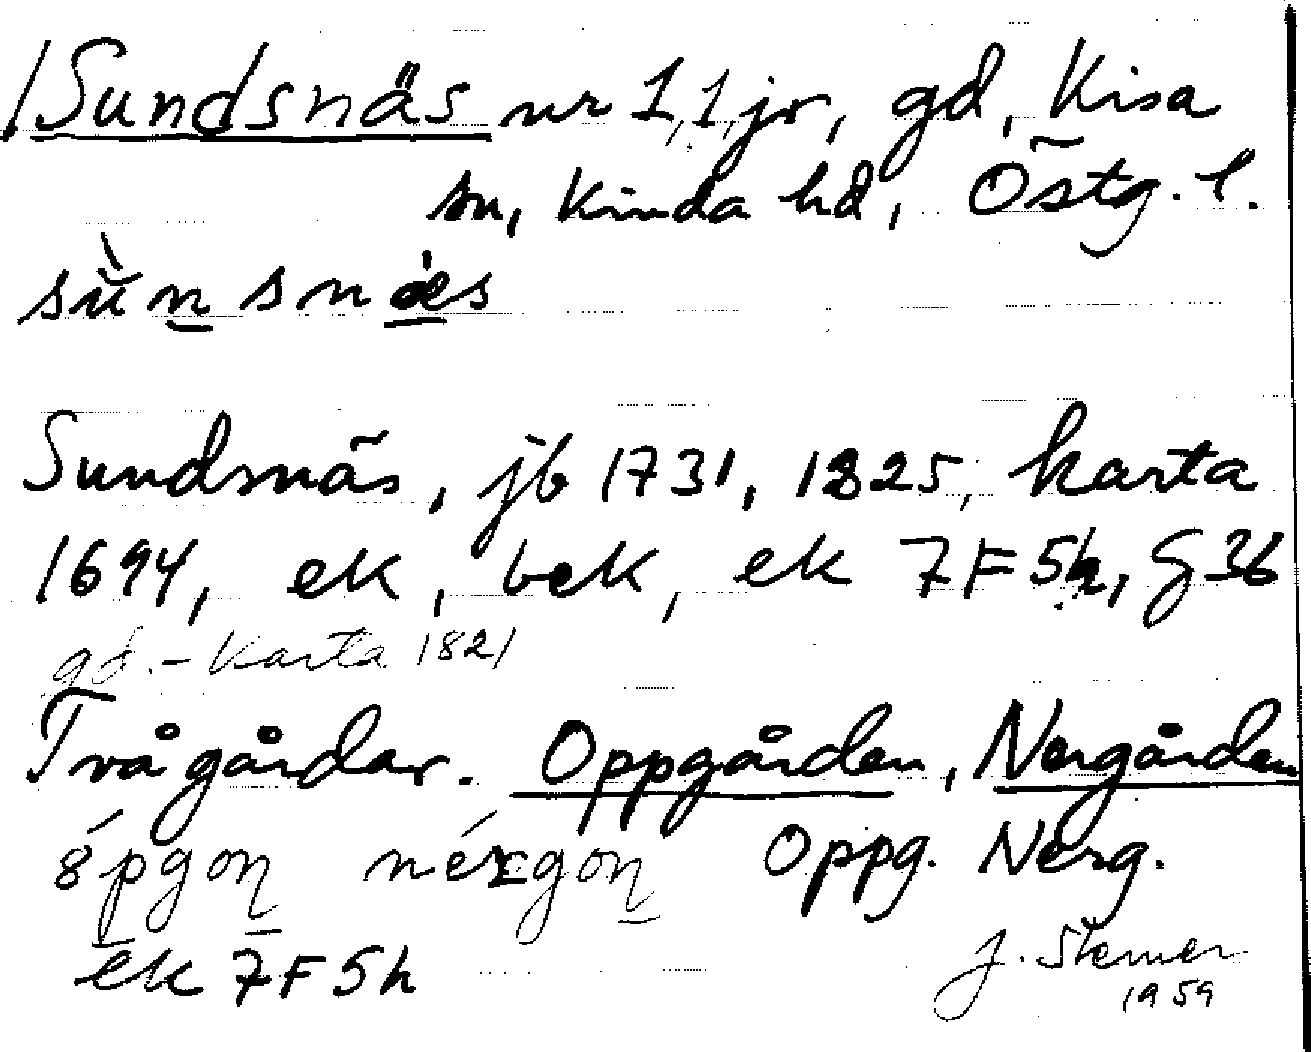 /Sund/snäs nr 1, 1 jr, gd, Kisa
sn, Kinda hd, Östg. l.
sùnsnæ̀s
Sundsnäs, jb 1731, 1825, karta
1694, ek, bek, ek 7F5h, G36
gd. - Karta 1821
Två gårdar. Oppgården, Nergården
Oppg. Nerg.
ek 7F5h
1959